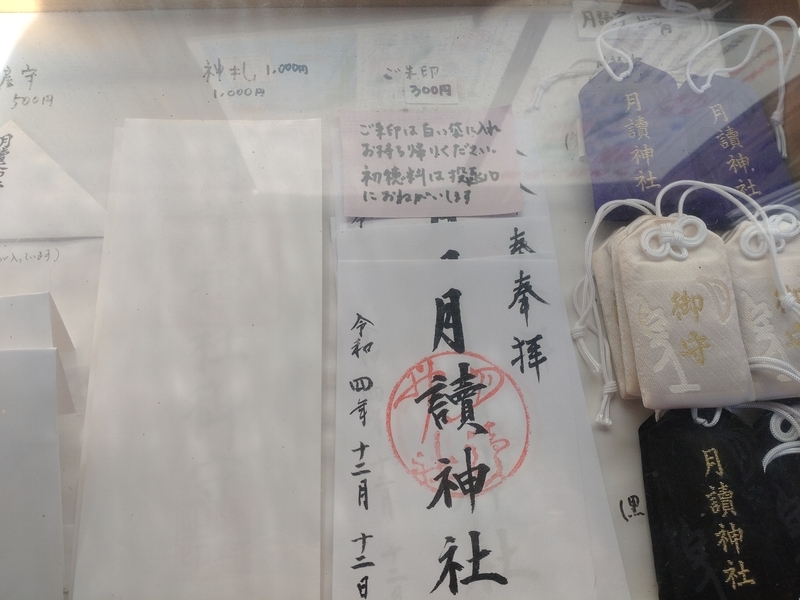 500円
神札 1,000円
1,000円
ご朱印
300円
ご朱印は白い袋に入れ
お持ち帰りください。
初穂料は投函口
におねがいします
奉拝
月讀神社
令和四年十二月十二日
月讀神社
月讀神社
御守
御守
月讀神社
(黒